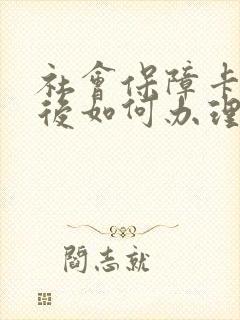 社會保障卡
後如何办理
閻志就